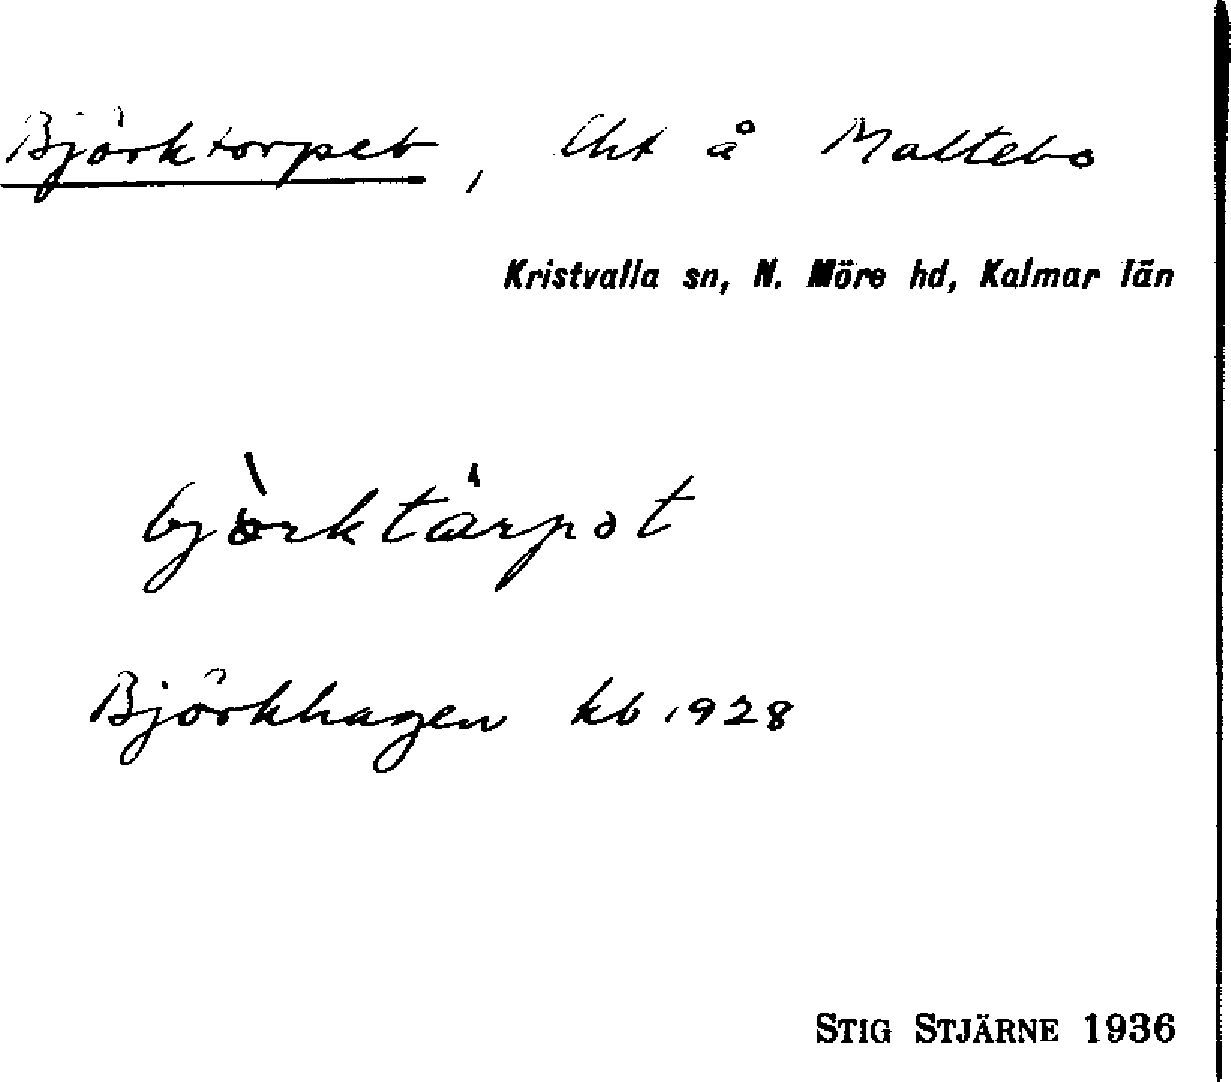 Björktorpet, lht å Maltebo
Kristvalla sn, N. Möre hd, Kalmar län
bjòrktárpət
Björkhagen kb 1928
STIG STJÄRNE 1936